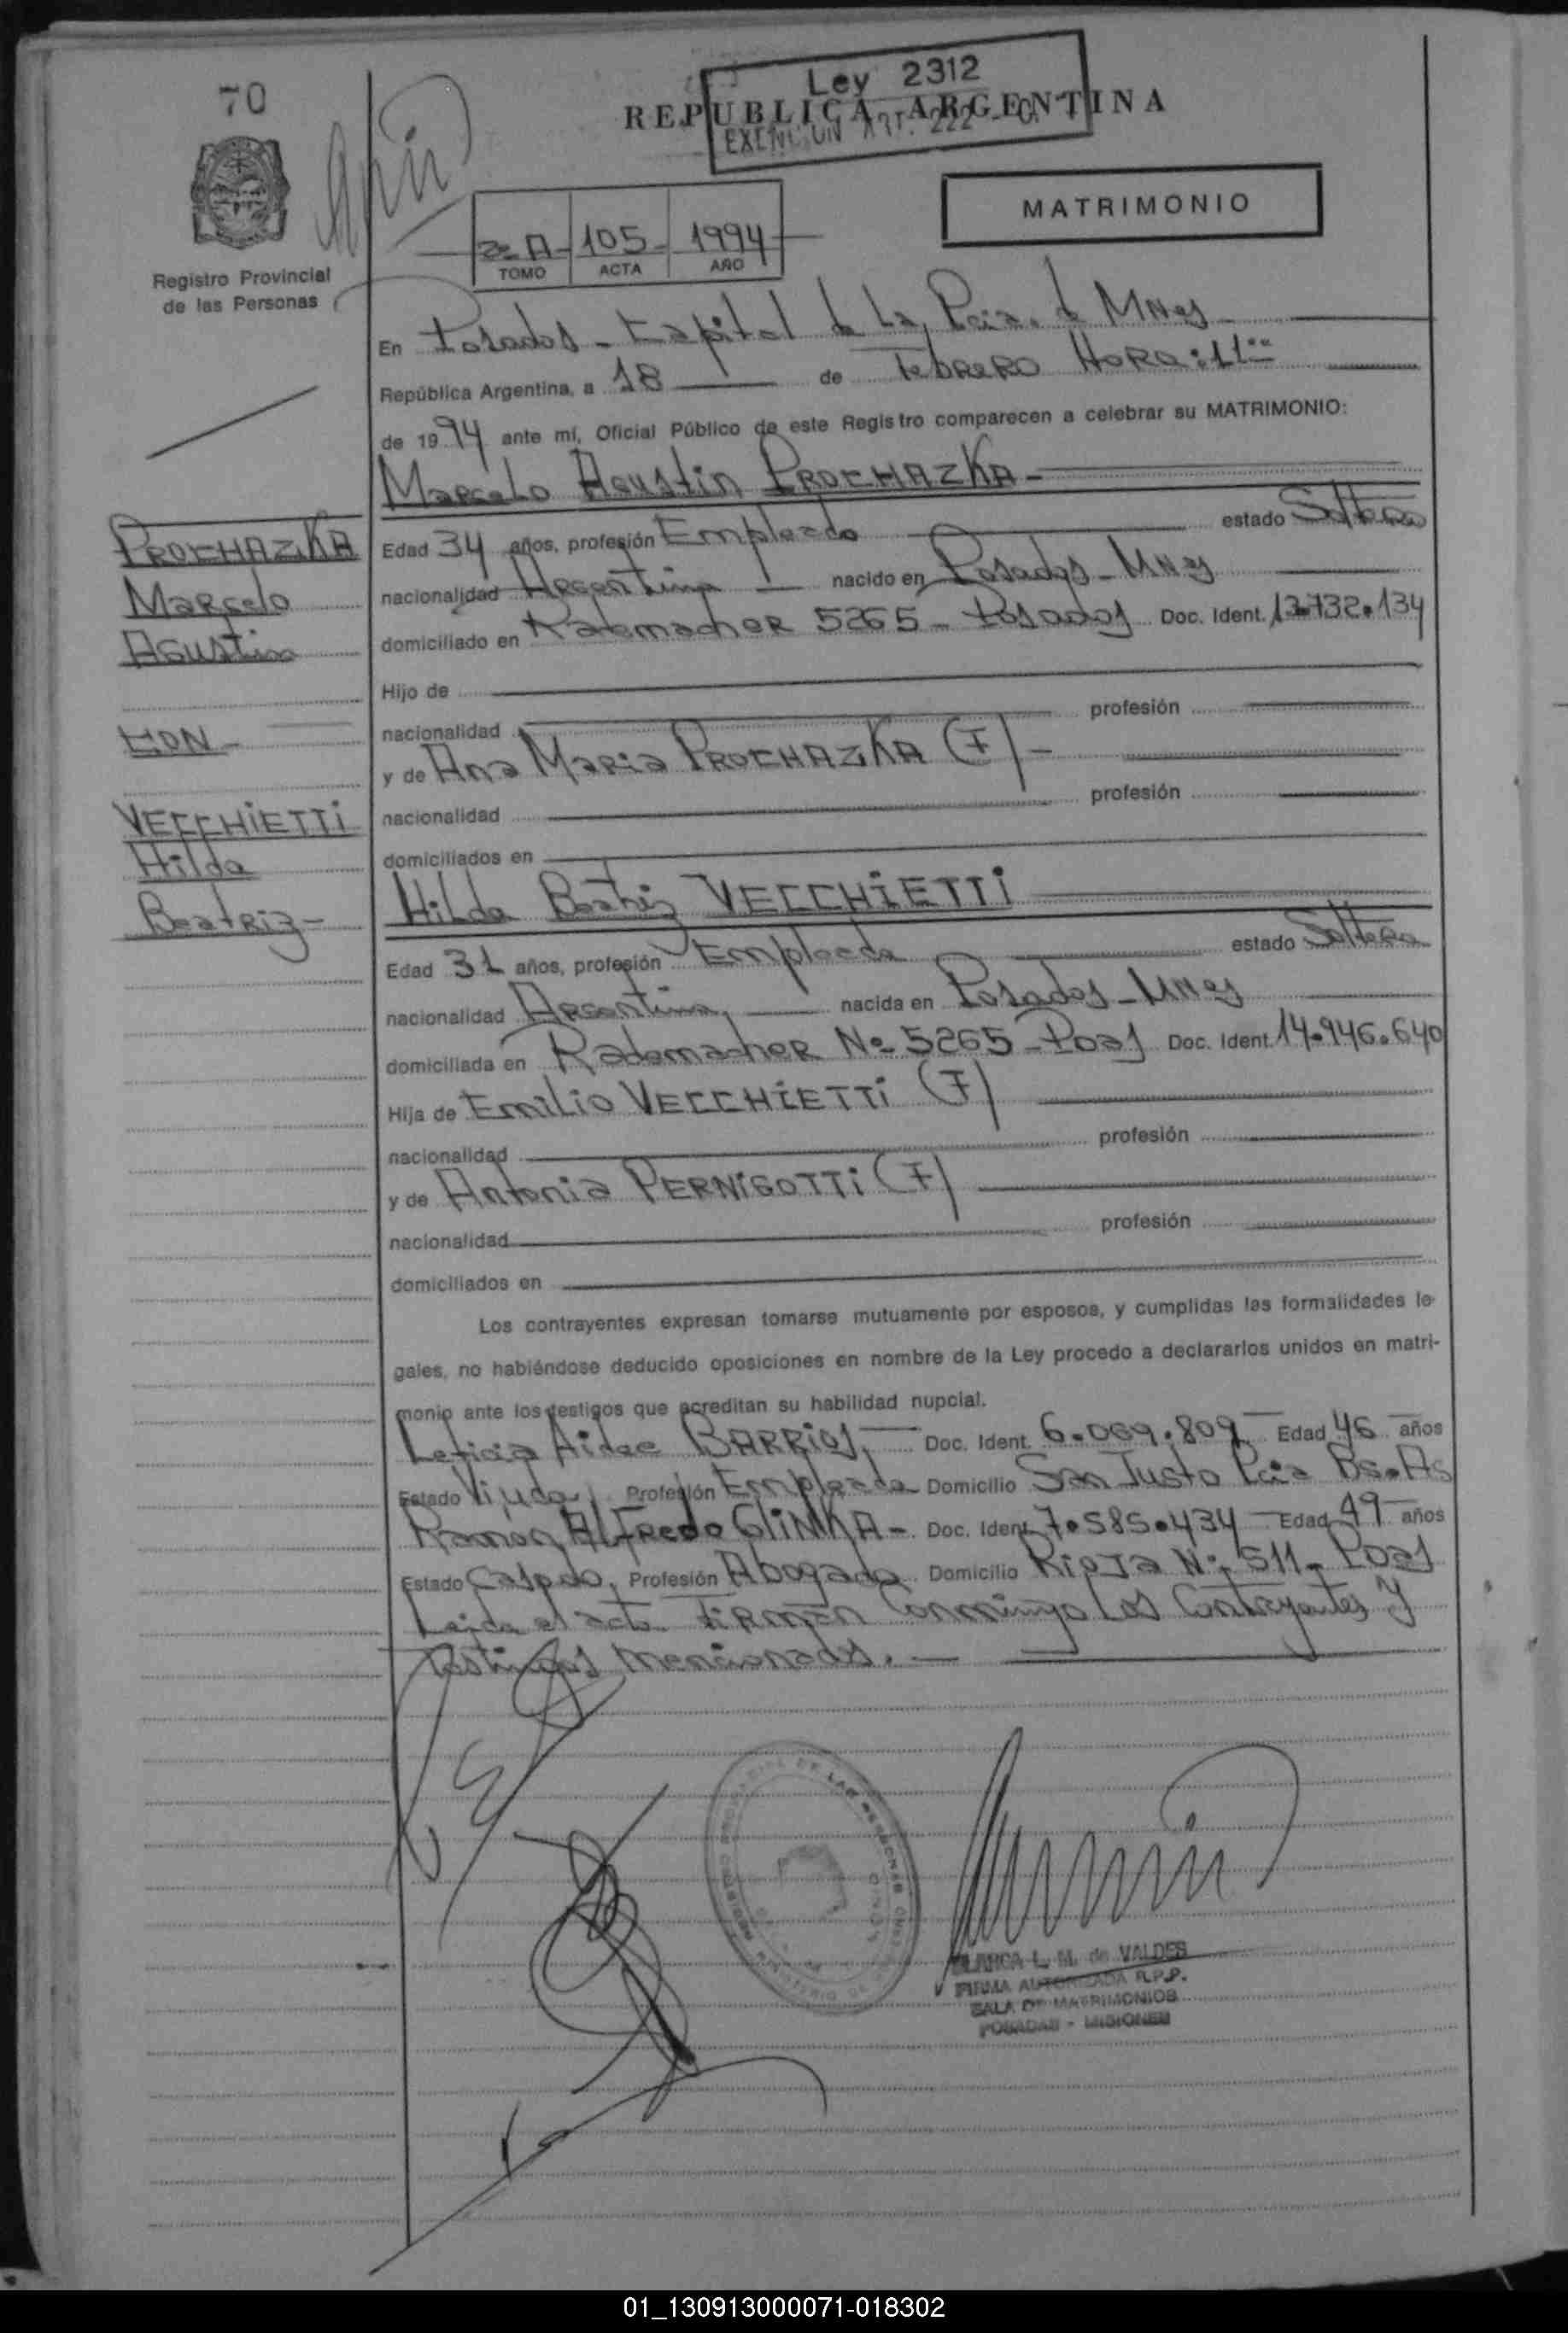 70
Ley 2312
REPUBLICA ARGENTINA
EXENCION ART. 222
MATRIMONIO
2º A - 105 - 1994
TOMO ACTA AÑO
Registro Provincial
de las Personas
En Posadas - Capital de La Pcia. de MNes
República Argentina, a 18 de Febrero HORA: 11
de 1994 ante mí, Oficial Público de este Registro comparecen a celebrar su MATRIMONIO:
Marcelo Agustin PROCHAZKA -
PROCHAZKA
Marcelo
Agustin
CON -
VECCHIETTI
Hilda
Beatriz -
Edad 34 años, profesión Empleado estado Soltero
nacionalidad Argentina nacido en Posadas - MNes
domiciliado en Rademacher 5265 - Posadas Doc. Ident. 13.732.134
Hijo de
nacionalidad profesión
y de Ana Maria PROCHAZKA (F) -
nacionalidad profesión
domiciliados en
Hilda Beatriz VECCHIETTI
Edad 31 años, profesión Empleada estado Soltera
nacionalidad Argentina, nacida en Posadas - MNes
domiciliada en Rademacher Nº 5265 - Pdas Doc. Ident. 14.946.640
Hija de Emilio VECCHIETTI (F)
nacionalidad profesión
y de Antonia PERNIGOTTI (F)
nacionalidad profesión
domiciliados en
Los contrayentes expresan tomarse mutuamente por esposos, y cumplidas las formalidades le-
gales, no habiéndose deducido oposiciones en nombre de la Ley procedo a declararlos unidos en matri-
monio ante los testigos que acreditan su habilidad nupcial.
Leticia Aidee BARRIOS, Doc. Ident. 6.069.809 Edad 46 años
Estado Viuda, Profesión Empleada Domicilio San Justo Pcia Bs.As
Ramon Alfredo GLINKA - Doc. Ident. 7.585.434 Edad 49 años
Estado Casado, Profesión Abogado Domicilio Rioja Nº 511 - Pdas
Leida el acta firman Conmingo Los Contrayentes y
Testigos mencionados. -
BLANCA L. M. de VALDES
FIRMA AUTORIZADA R.P.P.
SALA DE MATRIMONIOS
POSADAS - MISIONES
01_130913000071-018302